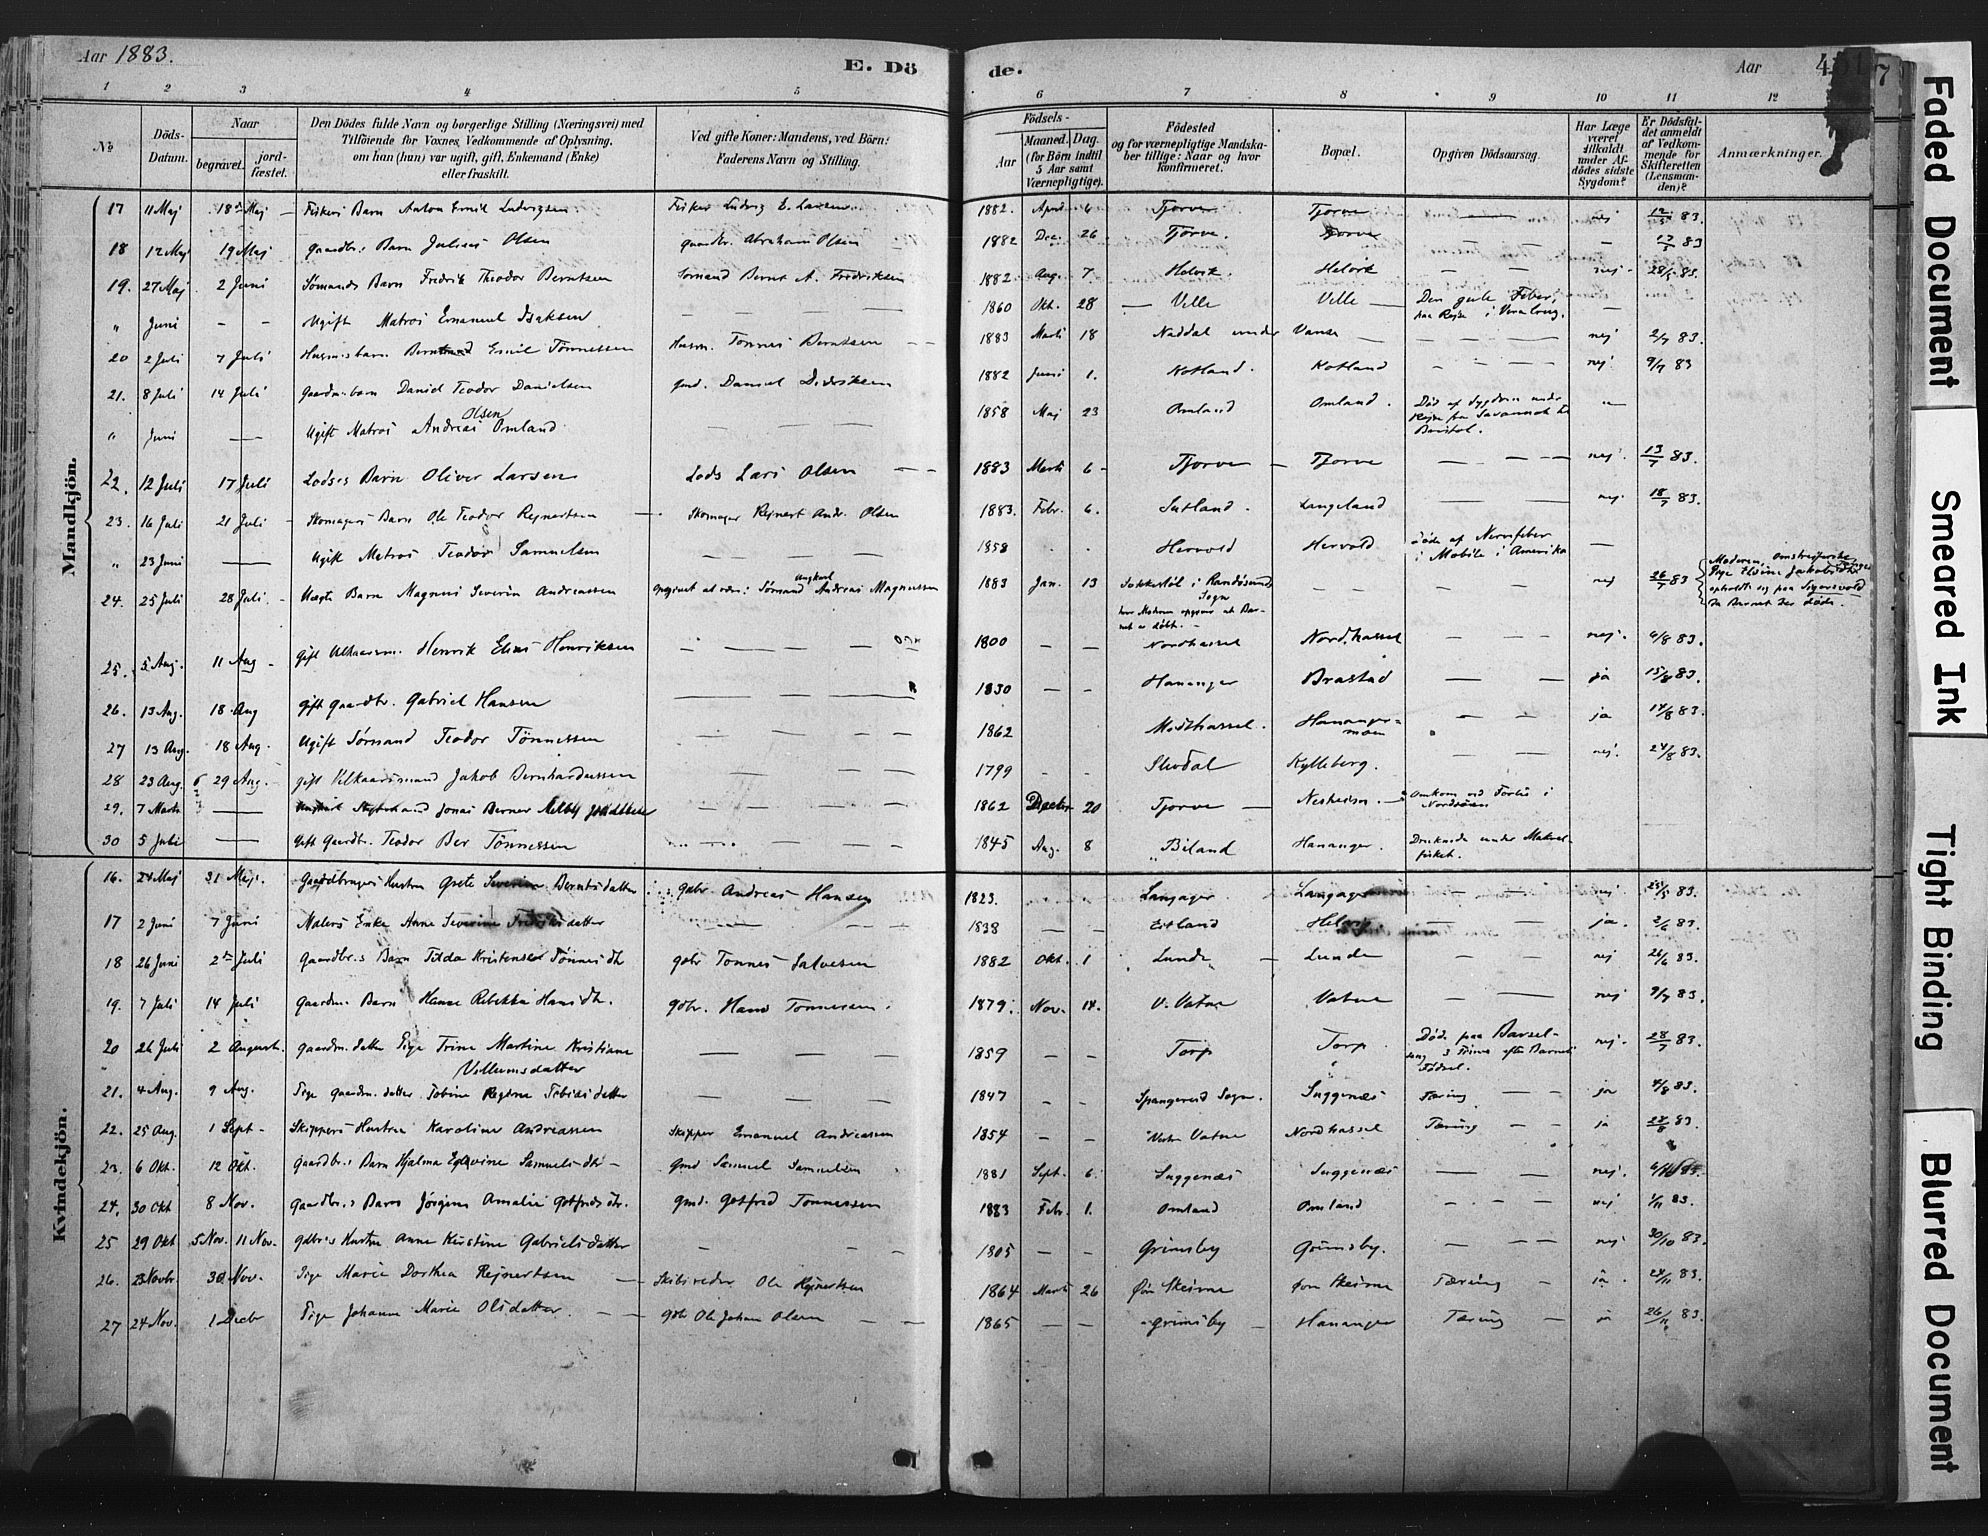 Aar 1883.
E. Dö
de.
Aar
1 2 3 4 5
6 7 8 9 10 11 12
No
Döds-
Datum.
Naar
begravet.
jord-
fæstet.
Den Dödes fulde Navn og borgerlige Stilling (Næringsvei) med
Tilföiende for Voxnes Vedkommende af Oplysning,
om han (hun) var ugift, gift, Enkemand (Enke)
eller fraskilt.
Ved gifte Koner: Mandens, ved Börn:
Faderens Navn og Stilling.
Födsels-
Aar
Maaned.
Dag.
(for Börn indtil
5 Aar samt
Værnepligtige).
Födested
og for værnepligtige Mandska-
ber tillige: Naar og hvor
konfirmeret.
Bopæl.
Opgiven Dödsaarsag.
Har Læge
været
tilkaldt
under Af-
dödes sidste
Sygdom?
Er Dödsfal-
det anmeldt
af Vedkom-
mende for
Skifteretten
(Lensman-
den)?
Anmærkninger.
Mandkjön.
17 11 Maj 18de Maj Fiskers Barn Anton Emil Ludvigsen Fisker Ludvig E. Larsen 1882. April 6 Tjorve Tjorve nej 12/5 83.
18 12 Maj 19 Maj Gaardbr.s Barn Julius Olsen Gaardbr. Abraham Olsen 1882 Dec. 26 Tjorve. Tjorve 83
19. 27 Maj 2 Juni Sømands Barn Fredrik Theodor Berntsen Sømand Bernt A. Fredriksen 1882 Aug. 7 Helvik. Helvik nej. 28/5 83.
" Juni Ugift Matros Emanuel Isaksen 1860 Okt. 28 Velle Velle Den gule Feber,
paa Rejse i Vera Cruz.
20 2 Juli 7 Juli Husm.s barn Emil Tønnessen Husm. Tønnes Berntsen 1883 Marts 18 Naddal under Vanse nej 2/7 83.
21. 8 Juli 14 Juli Gaardm.s barn Daniel Teodor Danielsen Gmd. Daniel Didriksen 1882 Juni 1. Kotland. Kotland nej. 9/7 83
" Juni Ugift Matros Andreas Olsen Omland 1858 Maj 23 Omland Omland. Død af Sygdom under
Rejse fra Savannah til
Bristol.
22. 12 Juli 17 Juli Lodses Barn Oliver Larsen Lods Lars Olsen 1883 Marts 6 Tjorve Tjorve nej. 13/7 83.
23. 16 Juli 21 Juli Skomagers Barn Ole Teodor Rejnertsen Skomager Rejnert Andr. Olsen 1883. Febr. 6. Langeland nej. 18/7 83.
" 23 Juni Ugift Matros Teodor Samuelsen 1858 Hervold Hervold Døde af Nervefeber
i Mobile i Amerika
24. 25 Juli 28 Juli Uægte Barn Magnus Severin Andreassen Opgivet at være: Ungkarl Sømand Andreas Magnussen 1883 Jan. 13 i Randøsund
Sogn
hvor Moderen opgiver at Bar-
net er døbt. nej 26/7 83 Moderen, omstreifende
Pige
opholdt sig paa Sigersvold
da Barnet der døde.
25. 5 Aug. 11 Aug. Gift Vilkaarsm. Henrik Elias Henriksen 1800 Nordhassel Nordhassel nej. 6/8 83.
26. 13 Aug. 18 Aug Gift Gaardbr. Gabriel Hansen 1830 Hananger Brastad ja 15/8 83.
27 13 Aug. 18 Aug. Ugift Sømand Teodor Tönnessen 1862 Midthassel. Hananger-
moen ja 14/8 83.
28 23 Aug. 29 Aug. Gift Vilkaarsmand Jakob Bernhardussen 1799 Stordal Kylleberg. nej. 24/8 83.
29. 7 Marts Jonas Berner 1862 Decbr 20 Tjorve Nesheim. Omkom ved Forlis i
Nordsøen
30 5 Juli Gift Gaardbr. Teodor Ber Tönnessen 1845 Aug. 8 Biland Hananger. Druknede under Makrel-
fisket.
Kvindekjön.
16. 24 Maj 31 Maj. Gaardbrugers Hustru Grete Severine Berntsdatter Gbr. Andreas Hansen 1823. Langager. Langager nej 83.
17 2 Juni 7 Juni Malers Enke Anne Severine datter 1838 Estland Helvig. ja. 2/6 83.
18 26 Juni 2de Juli Gaardbr.s Barn Tilda Kristense Tønnesdtr Gbr. Tønnes Salvesen 1882 Okt. 1 Lunde Lunde nej 26/6 83.
19. 7 Juli 14 Juli Gaardm. Barn Hanne Rebekka Hansdtr. Gbr. Hans Tønnesen. 1879. Nov. 14. V. Vatne Vatne nej 9/7 83.
20 26 Juli 2 August. Gaardm. datter Pige Trine Martine Kristiane
Villumsdatter 1859 Torp Torp Døde paa Barsel-
seng 3 Timer efter Barnets
Fødsel. nej. 28/7 83.
21. 4 Aug. 9 Aug. Pige Gaardm. datter Tobine Regine Tobiasdatter 1847 Spangereid Sogn. Snggenæs Tæring ja 4/8 83.
22. 25 Aug. 1 Sept. Skippers Hustru Karoline Andreassen Skipper Emanuel Andreassen 1854 Vestre Vatne Nordhassel Tæring ja 28/8 83.
23. 6 Okt. 12 Okt. Gaardbr.s Barn Hjalma Samuelsdtr Gmd Samuel Samuelsen 1881 Sept. 6. nej.
24. 30 Okt 8 Nov. Gaardbr.s Barn Jörgine Amalie Gotfredsdtr. Gmd. Gotfred Tönnessen 1883 Febr. 1. Omland Omland nej 1/11 83.
25 29 Okt 5 Nov. 11 Nov. Gdbr.s Hustru Anne Kirstine Gabrielsdatter 1805 Grimsby Grimsby. nej. 30/10 83.
26. 23 Novbr. 30 Nov. Pige Marie Dorthea Rejnertsen Skibsreder Ole Rejnertsen 1864 Marts 26 Øvr. Skeime Øvr Skeime Tæring ja. 24/11 83.
27 24 Nov. 1 Decbr Pige Johanne Marie Olsdatter Gbr Ole Johan Olsen 1865 Grimsby Hananger Tæring ja 26/11 83.
Faded Document
Smeared Ink
Tight Binding
Blurred Document